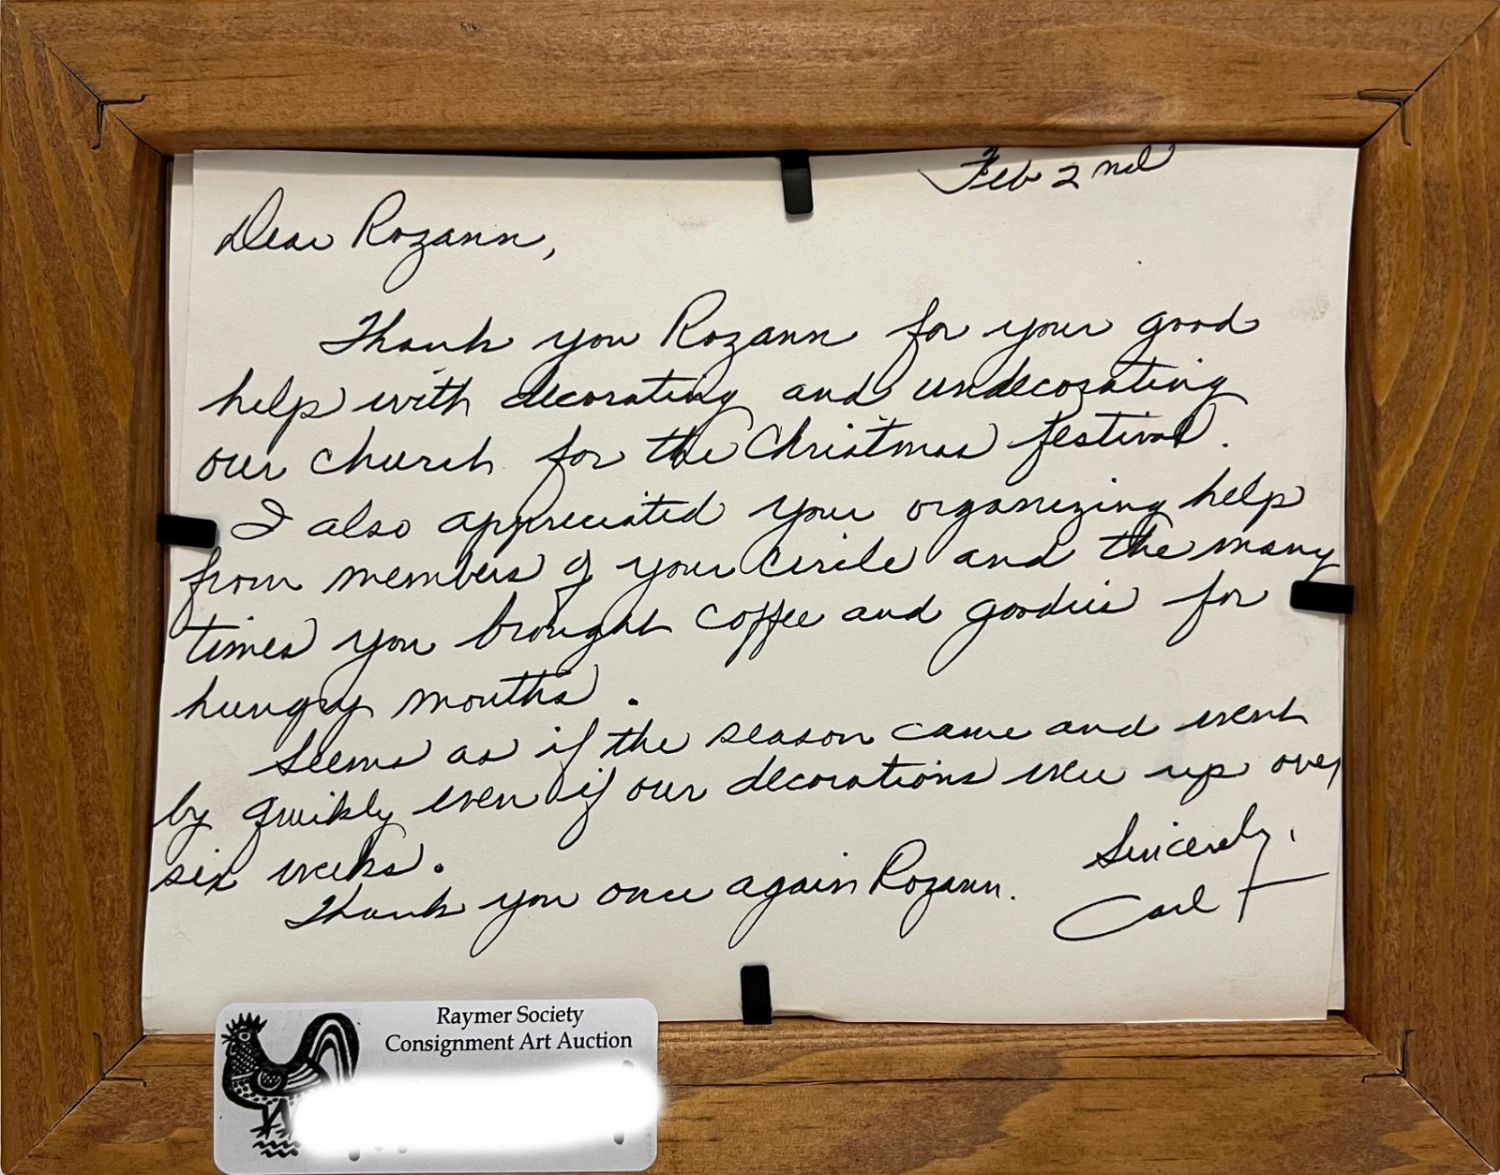 Feb 2nd
Dear Rozann,
Thank you Rozann for your good
help with decorating and undecorating
our church for the Christmas festival.
I also appreciated your organizing help
from members of your circle and the many
times you brought coffee and goodies for
hungry mouths.
Seems as if the season came and went
by quikly even if our decorations were up over
six weeks.
Thank you once again Rozann.
Sincerely,
Carl
Raymer Society
Consignment Art Auction